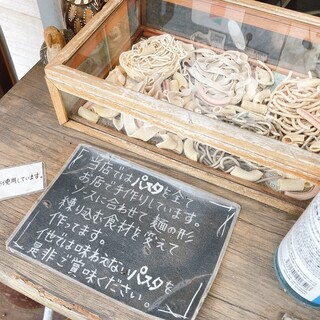 使用しています。
当店ではパスタを全て
お店で手作りしています。
ソースに合わせて麺の形
練り込む食材を変えて
作ってます。
他では味わえないパスタを
是非ご賞味ください。